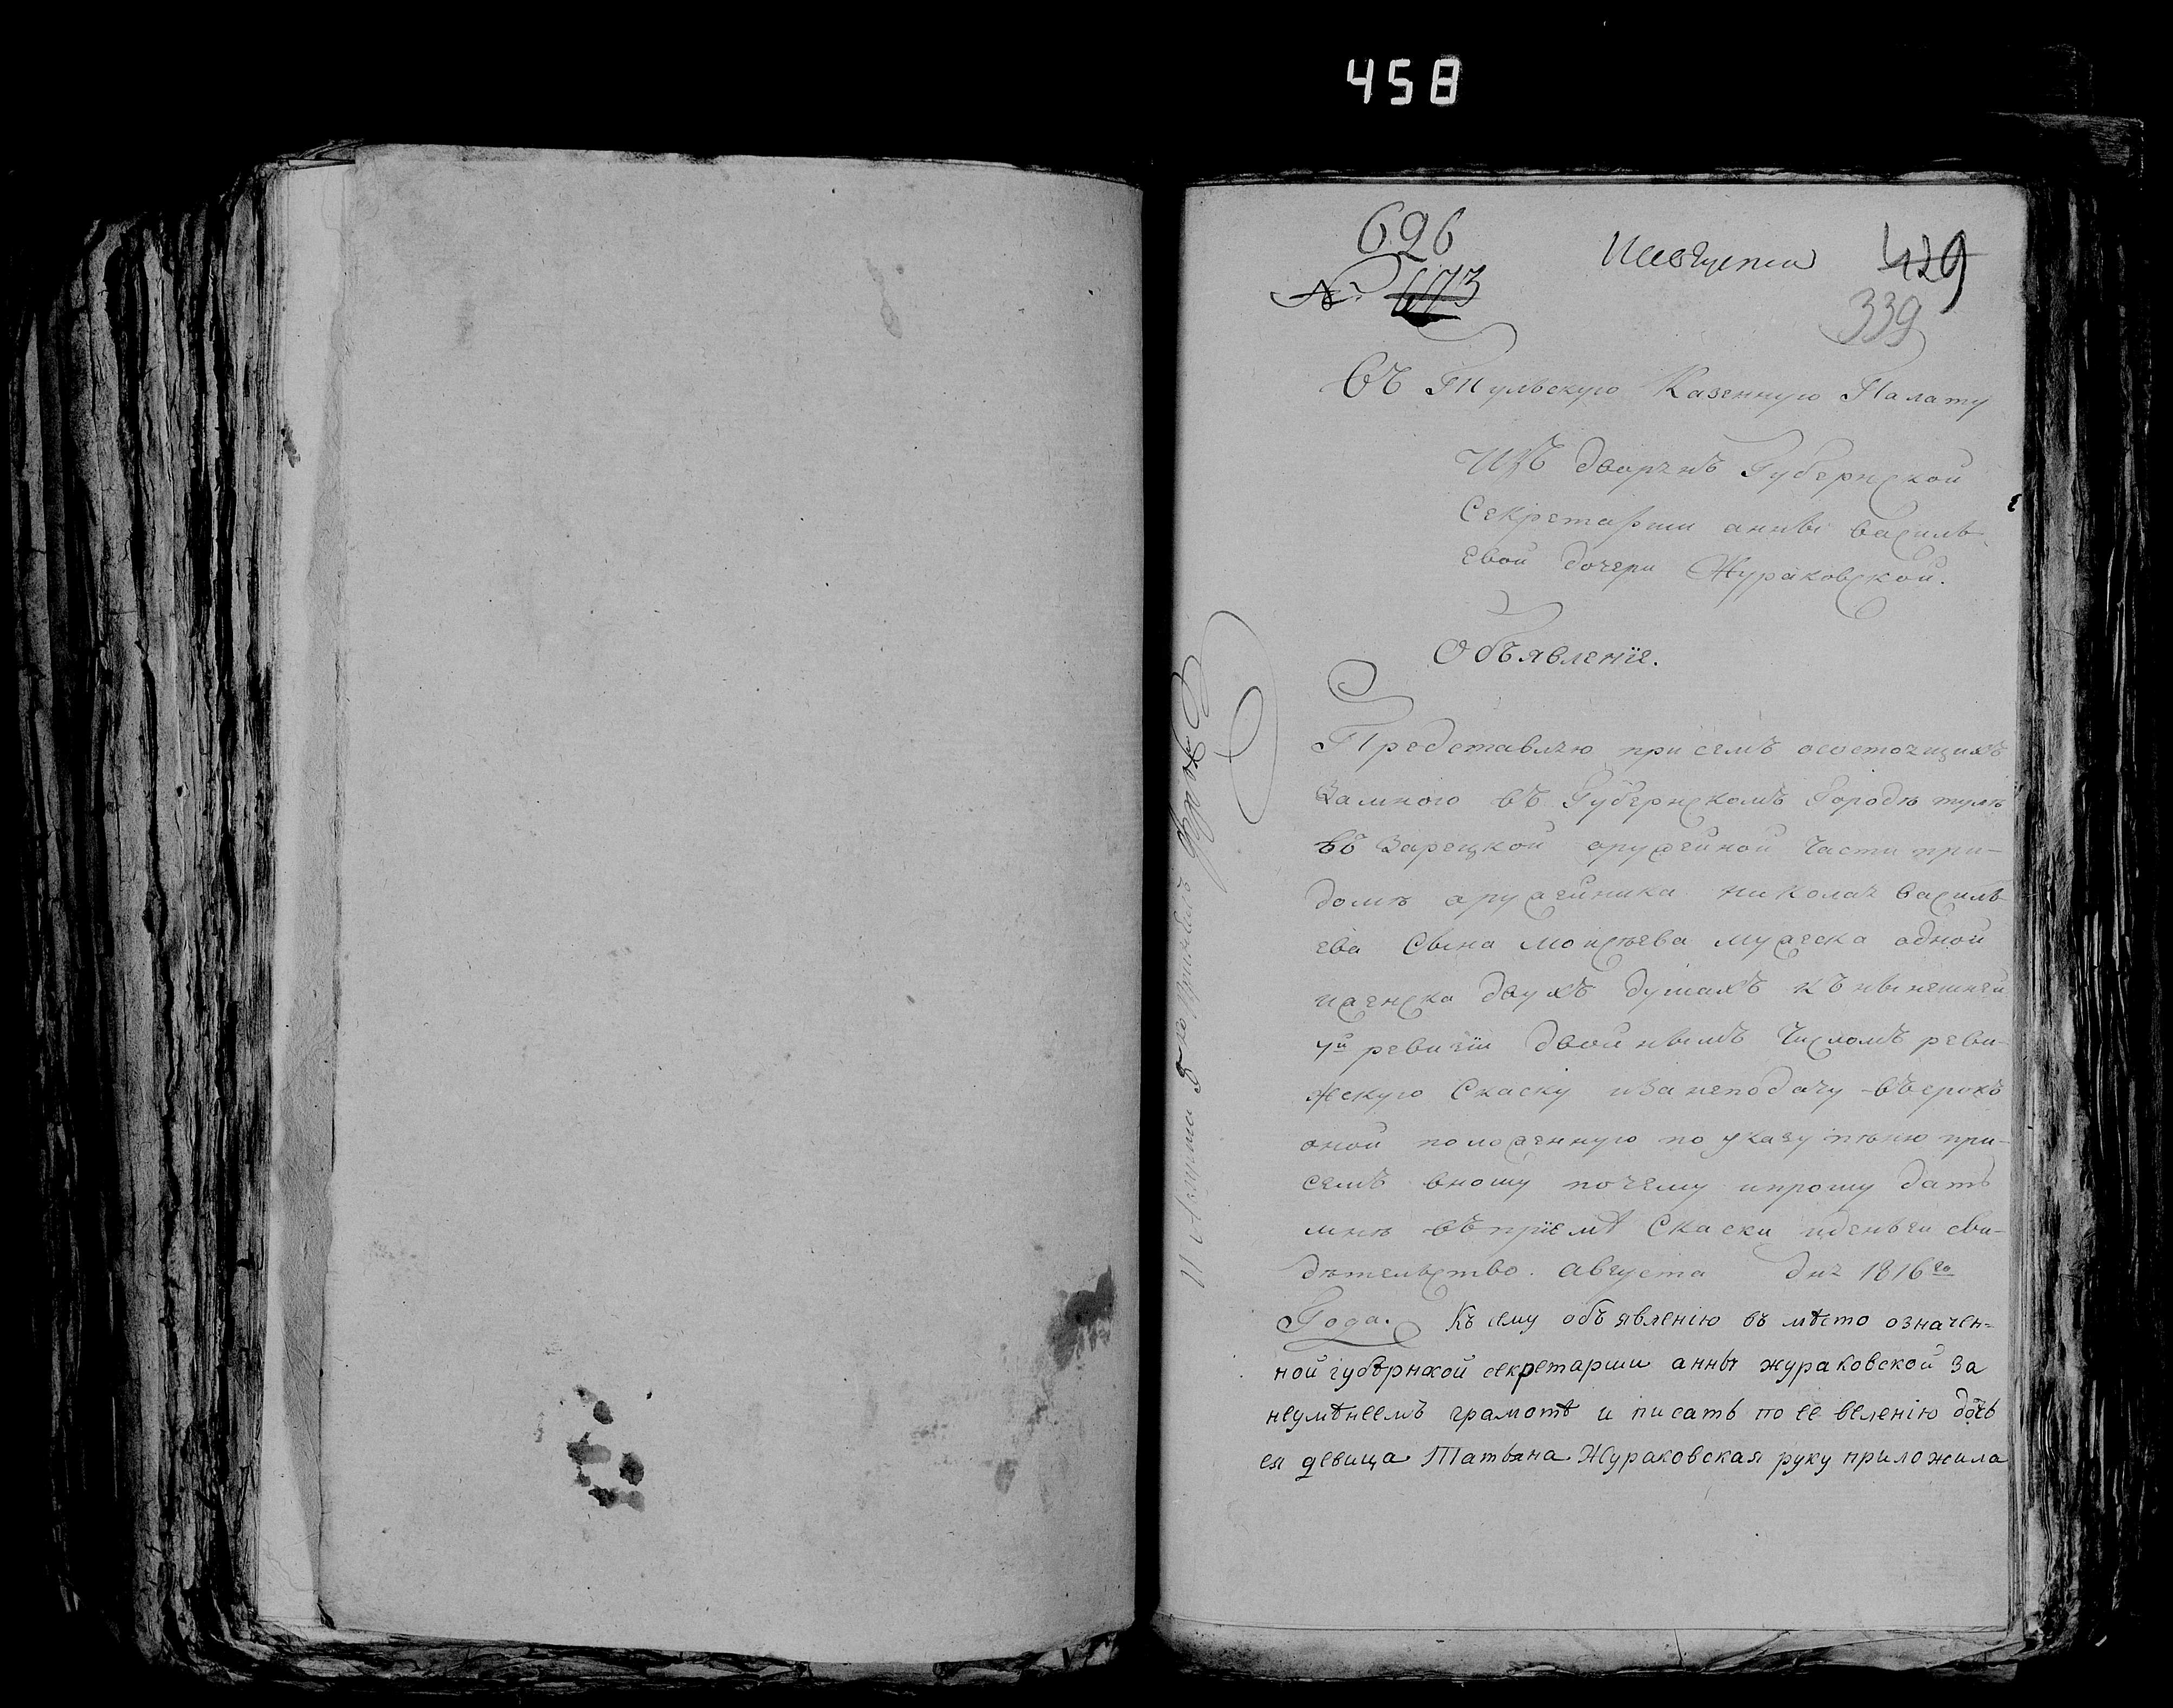 458
696
№ 673
11 августа 429
339
Въ Тульскую Казенную Палату
Изъ дворянъ Губернской
Секретарши анны василь
евой дочери Жураковской.
Объявленїе.
Представляю при семъ осостоящихъ
Замною въ Губернскомъ Городѣ тулѣ
въ Зарецкой оружейной части при-
домѣ оружейника николая василь
ева Сына моисѣева мужеска одной
иженска двухъ душахъ къ нынешней
7й ревизїи двойнымъ Числомъ реви-
жскую Скаску иза неподачу въсрокъ
оной положенную по указу пѣню при-
семъ вношу почему ипрошу дать
мнѣ въ прїемѣ Скаски иденьги сви-
дѣтельство. августа дня 1816го
Года. Къ сему объявленію въ мѣсто означен=
ной губернской секретарши анны жураковской за
неумѣнеемъ грамотѣ и писать по ее веленію дочь
ея девица Татьяна Жураковская руку приложила